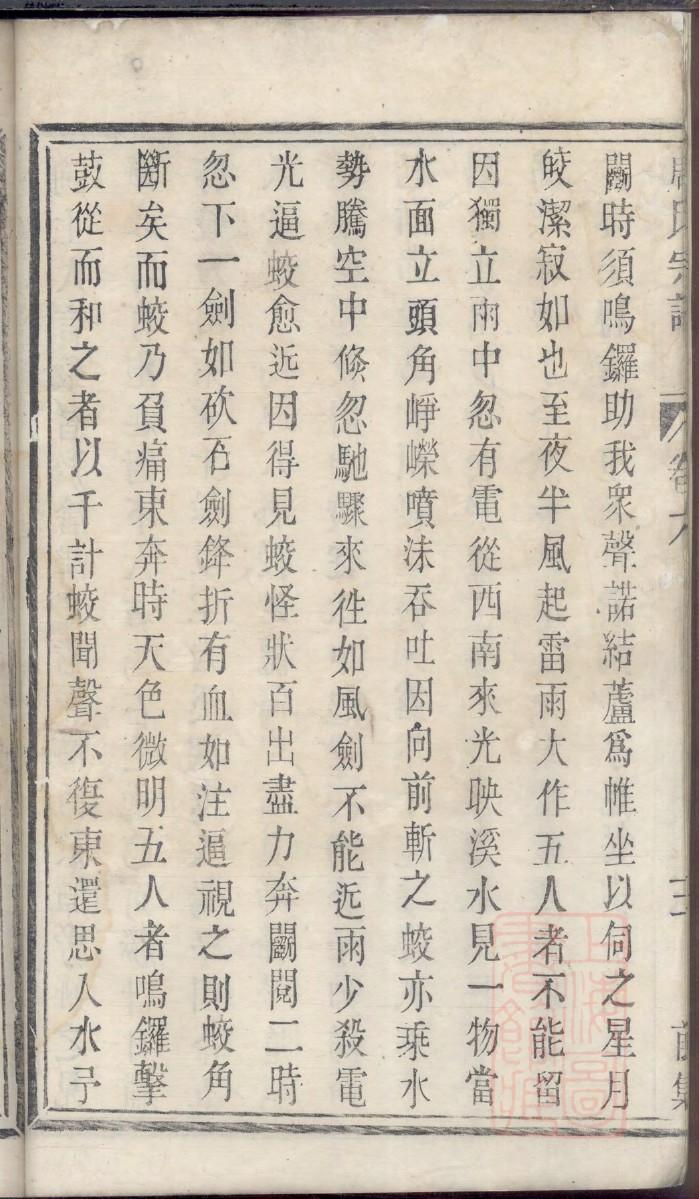 鬭時須鳴鑼助我衆聲諾結蘆爲帷坐以伺之星月
皎潔寂如也至夜半風起雷雨大作五人者不能留
因獨立雨中忽有電從西南來光映溪水見一物當
水面立頭角崢嶸噴沫吞吐因向前斬之蛟亦乗水
勢騰空中倏忽馳驟來徃如風劍不能近雨少殺電
光逼蛟愈近因得見蛟怪狀百出盡力奔鬭閱二時
忽下一劍如砍石劍鋒折有血如注逼視之則蛟角
斷矣而蛟乃負痛東奔時天色微明五人者鳴鑼擊
鼓從而和之者以千計蛟聞聲不復東還思入水予